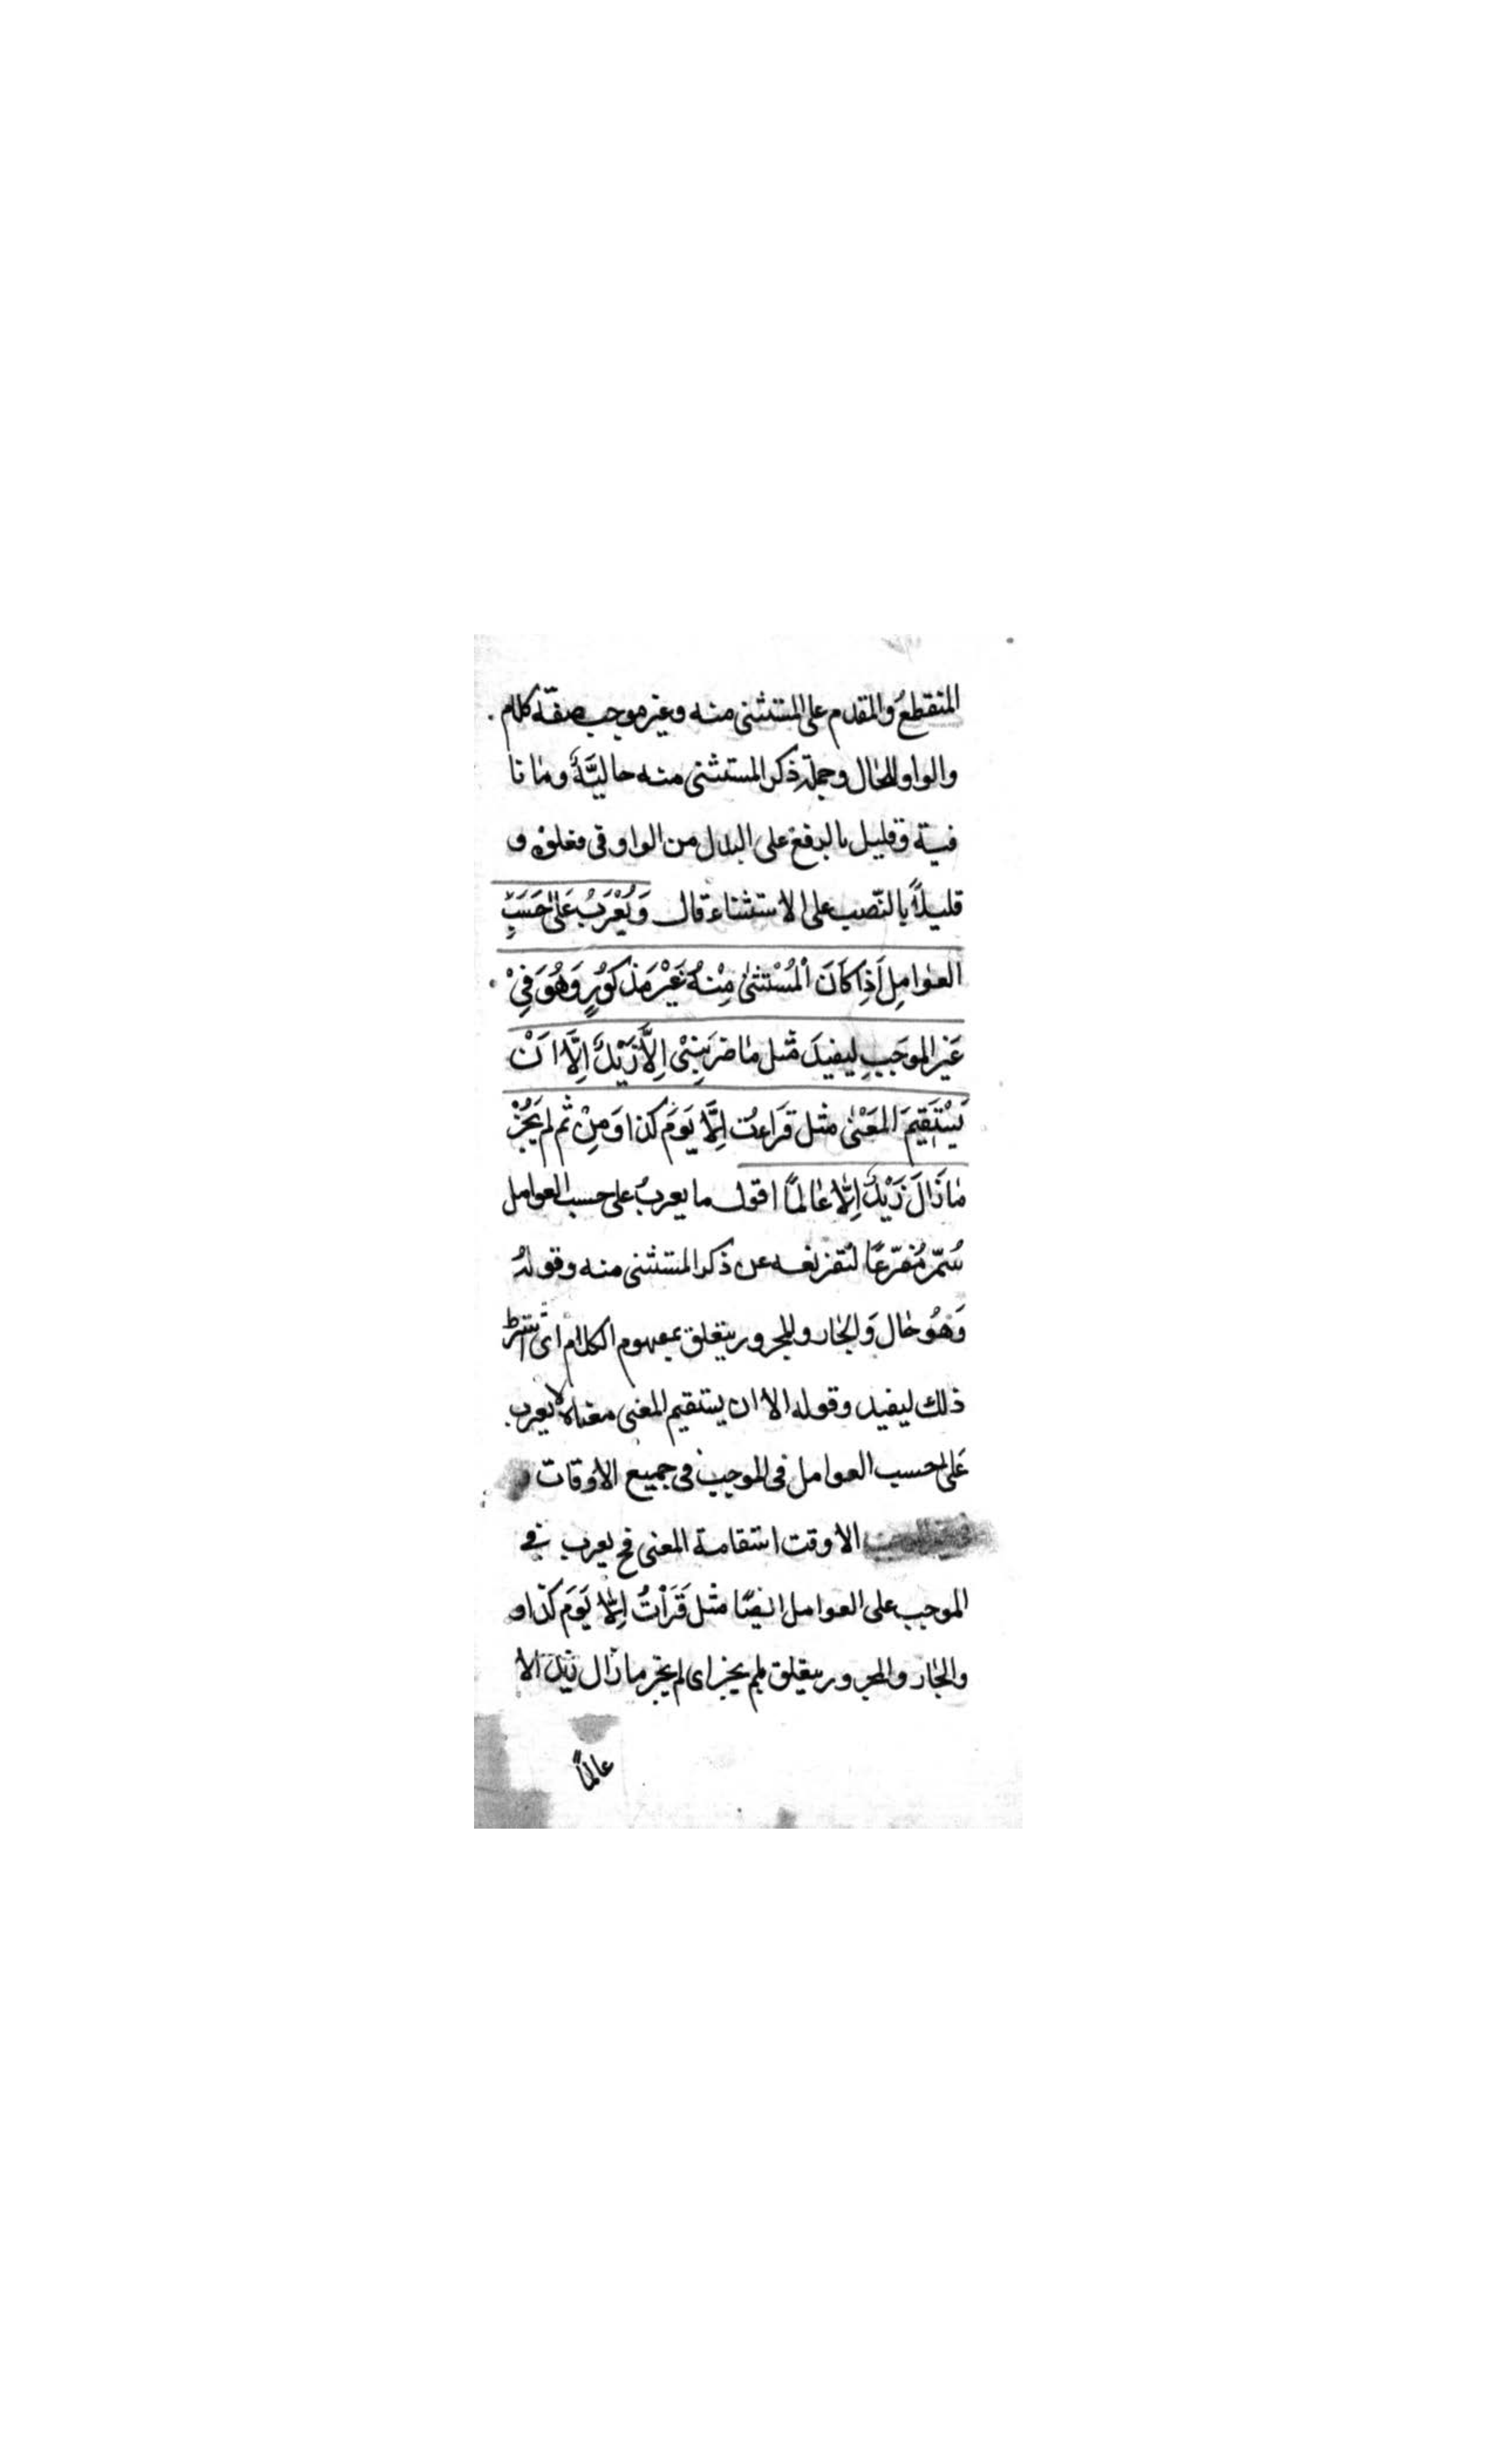 المنقطعُ والمقدم على المستثنى منه وغير موجب صفة كلام
والواو للحال وجملة ذكر المستثنى منه حاليَّةٌ وما نا
فية وقليل بالرفع على البدل من الواو في فعلوْه و
قليلاً بالنّصب على الاستثناء قال وَيُعْرَبُ عَلىٰ حَسَبِ
العوامِلِ اَذِا كَانَ اْلمُسْتَثنىٰ مِنْهُ غَيْرَ مَذْكُوْرٍ وَهُوَ فِيْ
غَيْرِ الموجَبِ ليفيدَ مثل مَا ضَرَبَنِيْ اِلَّا زَيْدٌ اِلَّا اَنْ
يَسْتَقِيْمَ المَعْنىٰ مثل قَرَاءتُ اِلَّا يَوْمَ كذا وَمِنْ ثَم لم يَجُزْ
مٰا زَالَ زَيْدٌ اِلَّا عَالماً اقول ما يعربُ على حسب العوامل
سُمّي مُفرّغًا لتفريغه عن ذكر المستثنى منه وقولهُ
وَهُو حَال وَالجَار والمجرور يتعلق بمفهوم الكلام اى اشترط
ذلك ليفيد وقوله الا ان يستقيم المعنى معناه لا يعرب
عَلىٰ حسب العوامل فى الموجب فى جميع الاوقات
الا وقت استقامة المعنى فح يعرب في
الموجب على العوامل ايضًا مثل قَرَأتُ اِلَّا يَوْمَ كذا و
والجار والمجرور يتعلق بلم يجز اى لم يجز ما زال زيد الا
عالماً